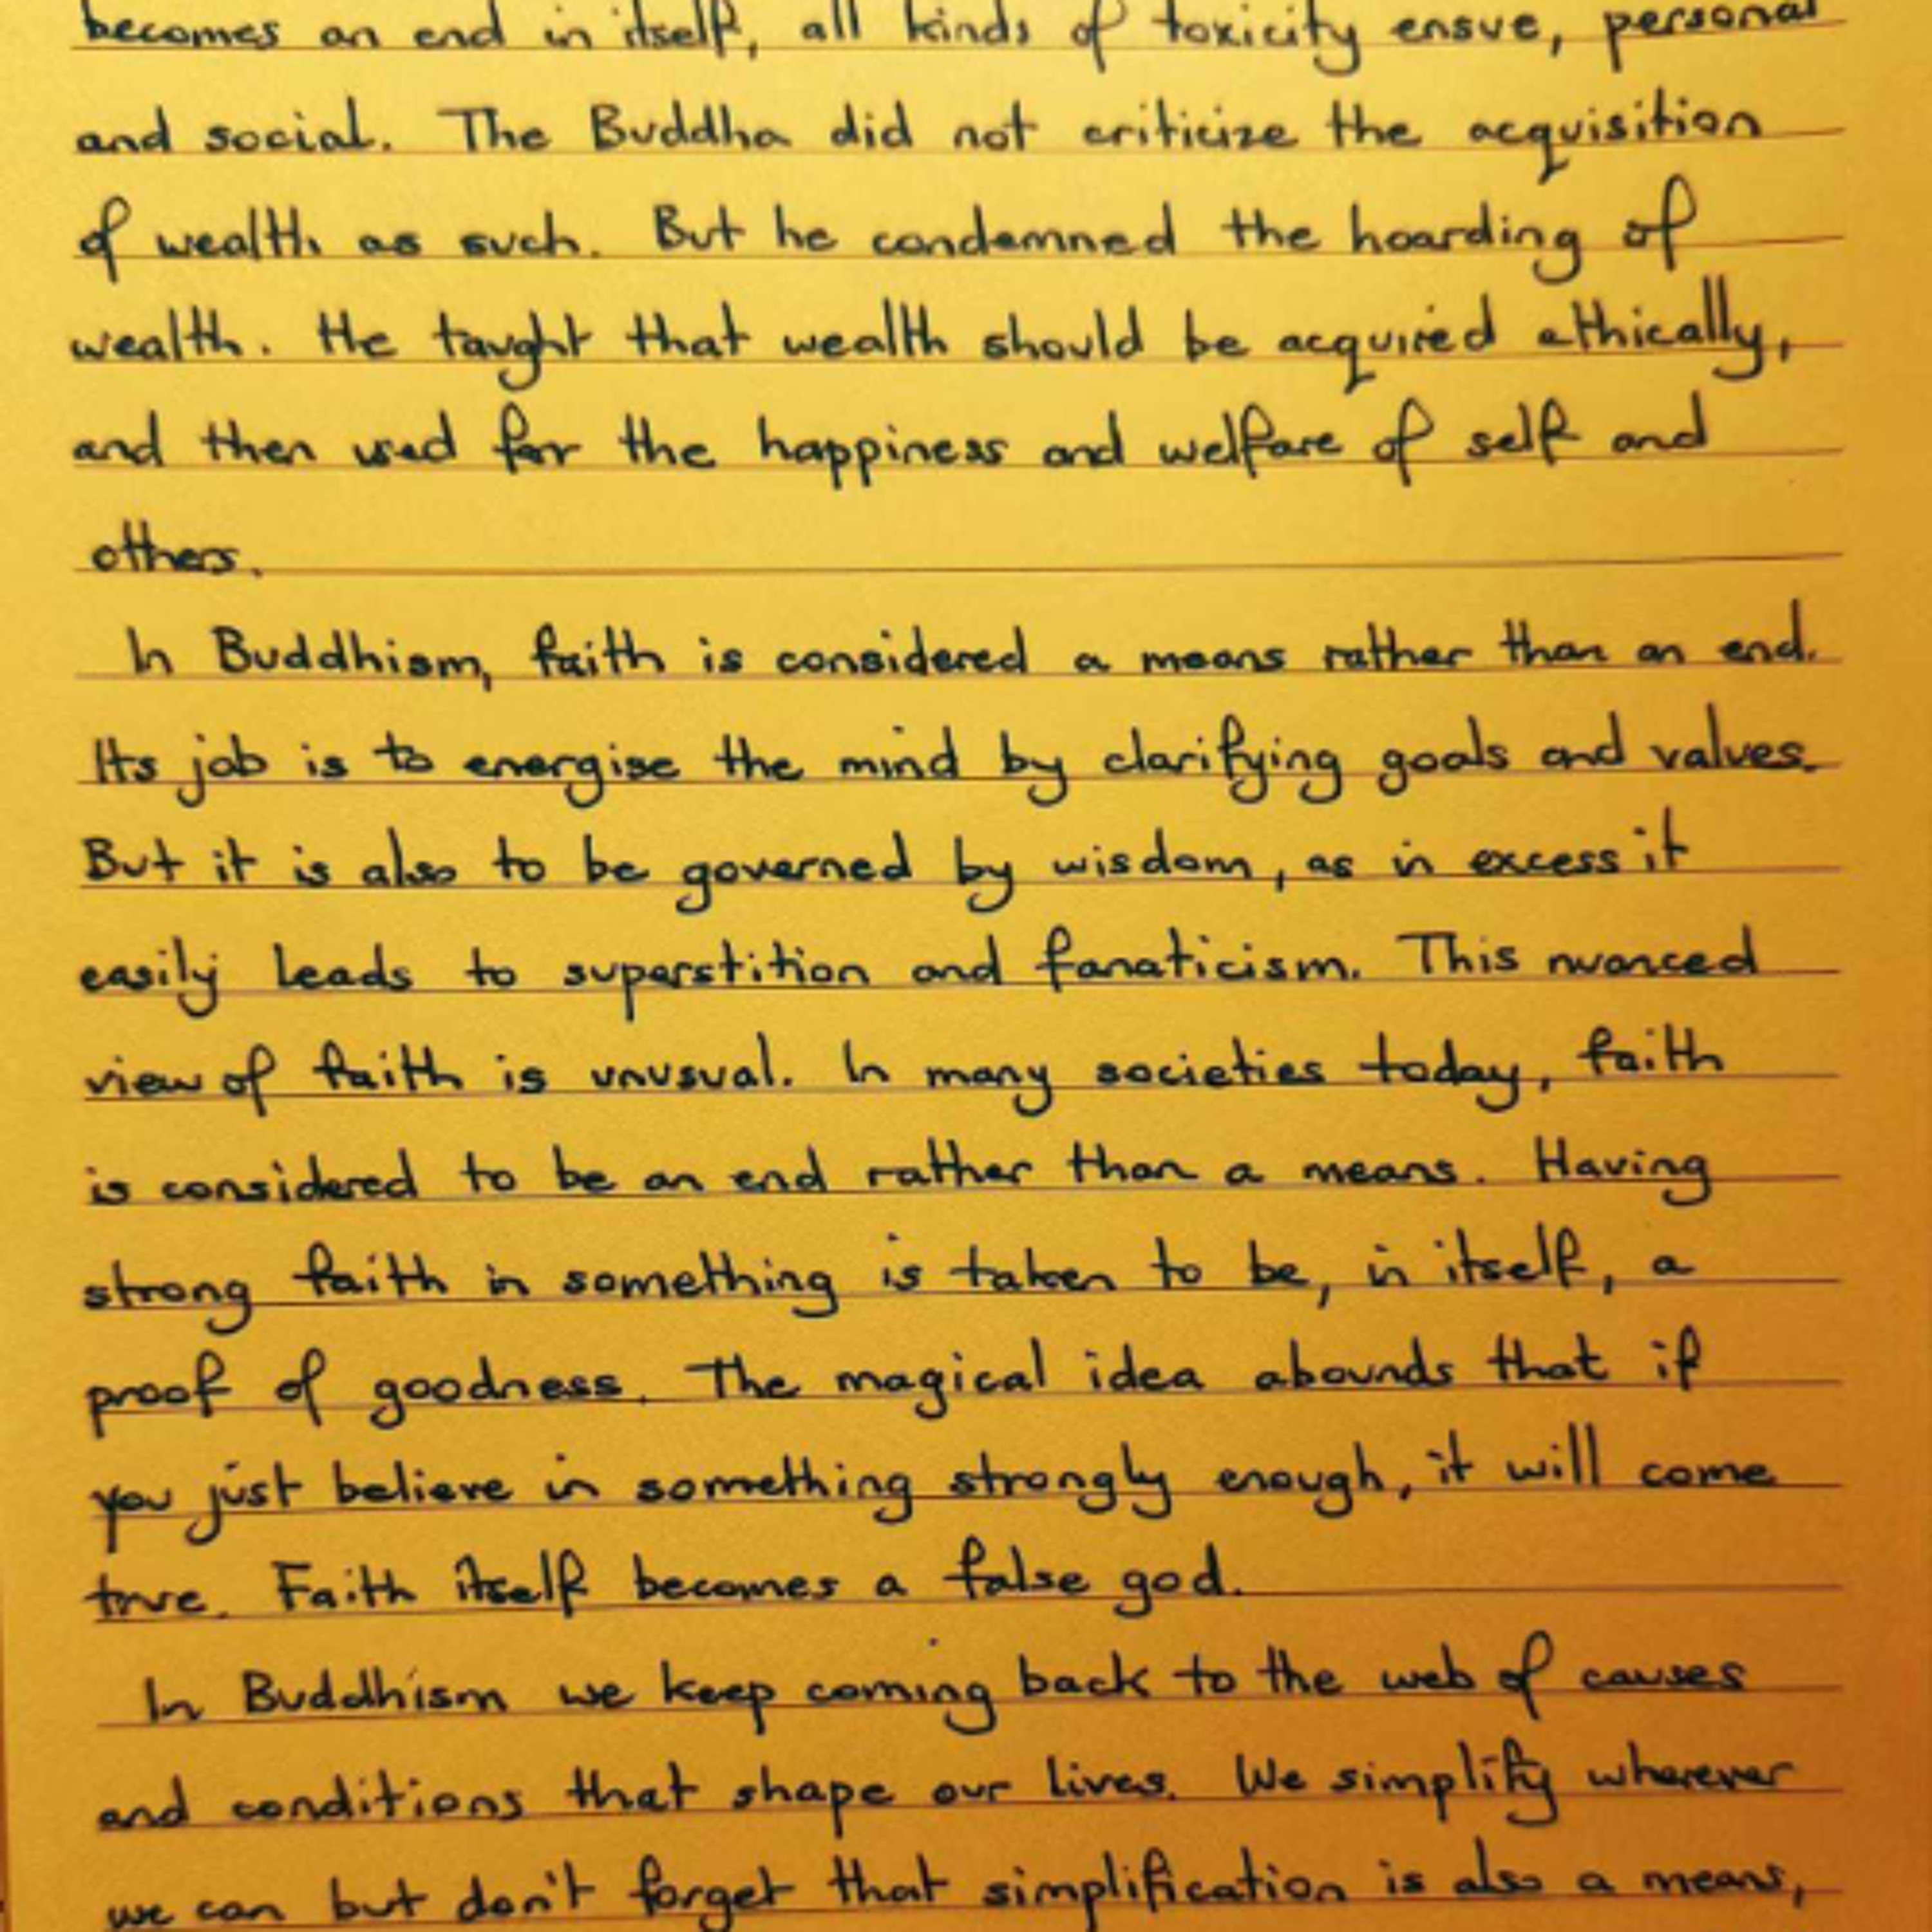 becomes an end in itself, all kinds of toxicity ensue, personal
and social. The Buddha did not criticize the acquisition
of wealth as such. But he condemned the hoarding of
wealth. He taught that wealth should be acquired ethically,
and then used for the happiness and welfare of self and
others.
In Buddhism, faith is considered a means rather than an end.
Its job is to energise the mind by clarifying goals and values.
But it is also to be governed by wisdom, as in excess it
easily leads to superstition and fanaticism. This nuanced
view of faith is unusual. In many societies today, faith
is considered to be an end rather than a means. Having
strong faith in something is taken to be, in itself, a
proof of goodness. The magical idea abounds that if
you just believe in something strongly enough, it will come
true. Faith itself becomes a false god.
In Buddhism we keep coming back to the web of causes
and conditions that shape our lives. We simplify wherever
we can but don't forget that simplification is also a means,